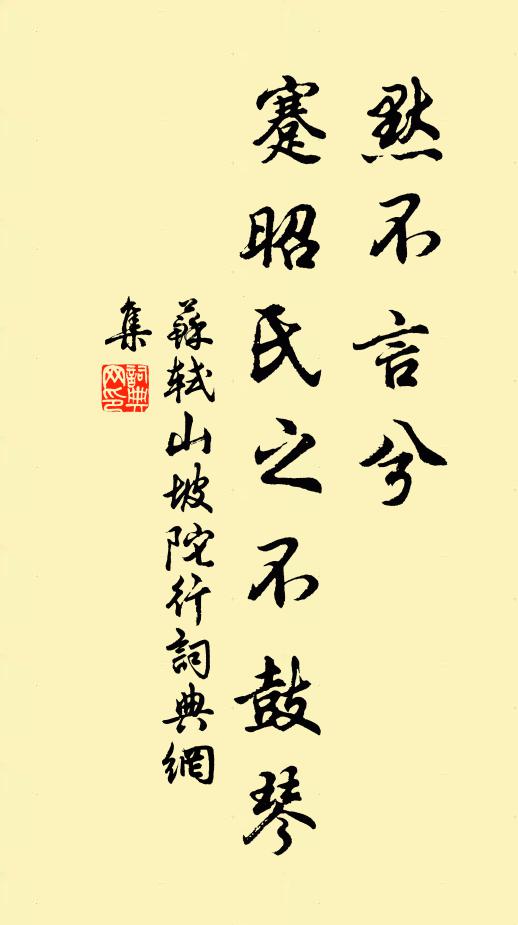 默不言兮
蹇昭氏之不鼓琴
蘇軾山坡陀行詞典網
集
詞典
网印